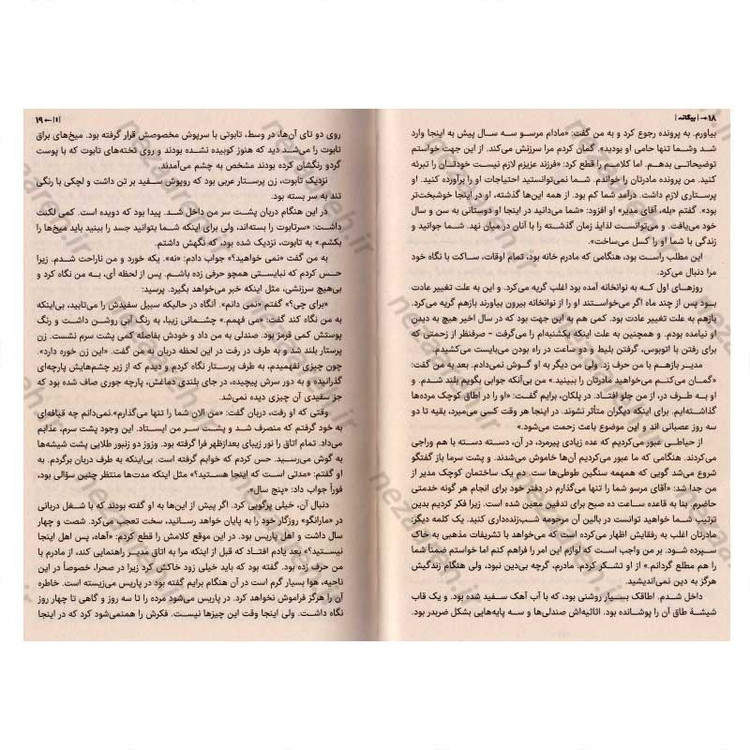 ۱۸ → | بیگانه |
بیاورم. به پرونده رجوع کرد و به من گفت: «مادام مرسو سه سال پیش به اینجا وارد
شد وشما تنها حامی او بودید». گمان کردم مرا سرزنش می‌کند. از این جهت خواستم
توضیحاتی بدهم. اما کلامم را قطع کرد: «فرزند عزیزم لازم نیست خودتان را تبرئه
کنید. من پرونده مادرتان را خواندم. شما نمی‌توانستید احتیاجات او را برآورده کنید. او
پرستاری لازم داشت. درآمد شما کم بود. از همه این‌ها گذشته، او در اینجا خوشبخت‌تر
بود». گفتم «بله، آقای مدیر» او افزود: «شما می‌دانید در اینجا او دوستانی به سن و سال
خود می‌یافت. و می‌توانست لذایذ زمان گذشته را با آنان در میان نهد. شما جوانید و
زندگی با شما او را کسل می‌ساخت»
این مطلب راست بود، هنگامی که مادرم خانه بود، تمام اوقات، ساکت با نگاه خود
مرا دنبال می‌کرد.
روزهای اول که به نوانخانه آمده بود اغلب گریه می‌کرد. و این به علت تغییر عادت
بود پس از چند ماه اگر می‌خواستند او را از نوانخانه بیرون بیاورند بازهم گریه می‌کرد.
بازهم به علت تغییر عادت بود. کمی هم به این جهت بود که در سال اخیر هیچ به دیدن
او نیامده بودم. و همچنین به علت اینکه یکشنبه‌ام را می‌گرفت - صرفنظر از زحمتی که
برای رفتن با اتوبوس، گرفتن بلیط و دو ساعت در راه بودن می‌بایست می‌کشیدم.
مدیر بازهم با من حرف زد. ولی من دیگر به او گوش نمی‌دادم. بعد به من گفت:
«گمان می‌کنم می‌خواهید مادرتان را ببینید.» من بی‌آنکه جوابی بگویم بلند شدم. و
او به طرف در، از من جلو افتاد. در پلکان، برایم گفت: «او را در اطاق کوچک مرده‌ها
گذاشته‌ایم. برای اینکه دیگران متأثر نشوند. در اینجا هر وقت کسی می‌میرد، بقیه تا دو
سه روز عصبانی اند و این موضوع باعث زحمت می‌شود.»
از حیاطی عبور می‌کردیم که عده زیادی پیرمرد، در آن، دسته دسته با هم وراجی
می‌کردند. هنگامی که ما عبور می‌کردیم خاموش می‌شدند. و پشت سرما باز گفتگو
شروع می‌شد گویی که همهمه سنگین طوطی‌ها است. دم یک ساختمان کوچک مدیر از
من جدا شد: «آقای مرسو شما را تنها می‌گذارم در دفتر خود برای انجام هر گونه خدمتی
حاضرم. بنا به قاعده ساعت ده صبح برای تدفین معین شده است. زیرا فکر کردیم بدین
ترتیب شما خواهید توانست در بالین آن مرحومه شب‌زنده‌داری کنید. یک کلمه دیگر:
مادرتان اغلب به رفقایش اظهار می‌کرده است که می‌خواهد با تشریفات مذهبی به خاک
سپرده شود. بر من واجب است که لوازم این امر را فراهم کنم اما خواستم ضمناً شما
را هم مطلع گردانم.» از او تشکر کردم. مادرم، گرچه بی‌دین نبود، ولی هنگام زندگیش
هرگز به دین نمی‌اندیشید.
داخل شدم. اطاقک بسیار روشنی بود، که با آب آهک سفید شده بود. و یک قاب
شیشهٔ طاق آن را پوشانده بود. اثاثیه‌اش صندلی‌ها و سه پایه‌هایی بشکل ضربدر بود.
| ۱ | ← ۱۹
روی دو تای آن‌ها، در وسط، تابوتی با سرپوش مخصوصش قرار گرفته بود. میخ‌های براق
تابوت را می‌شد دید که هنوز کوبیده نشده بودند و روی تخته‌های تابوت که با پوست
گردو رنگشان کرده بودند مشخص به چشم می‌آمدند.
نزدیک تابوت، زن پرستار عربی بود که روپوش سفید بر تن داشت و لچکی با رنگی
تند به سر بسته بود.
در این هنگام دربان پشت سر من داخل شد. پیدا بود که دویده است. کمی لکنت
داشت: «سرتابوت را بسته‌اند، ولی برای اینکه شما بتوانید جسد را ببینید باید میخ‌ها را
بکشم.» به تابوت، نزدیک شده بود، که نگهش داشتم.
به من گفت «نمی خواهید؟» جواب دادم: «نه». یکه خورد و من ناراحت شدم. زیرا
حس کردم که نبایستی همچو حرفی زده باشم. پس از لحظه ای، به من نگاه کرد و
بی‌هیچ سرزنشی، مثل اینکه خبر می‌خواهد بگیرد. پرسید:
«برای چی؟» گفتم «نمی دانم». آنگاه در حالیکه سبیل سفیدش را می‌تابید، بی‌اینکه
به من نگاه کند گفت: «می فهمم.» چشمانی زیبا، به رنگ آبی روشن داشت و رنگ
پوستش کمی قرمز بود. صندلی به من داد و خودش بفاصله کمی پشت سرم نشست. زن
پرستار بلند شد و به طرف در رفت در این لحظه دربان به من گفت. «این زن خوره دارد».
چون چیزی نفهمیدم، به طرف پرستار نگاه کردم و دیدم که از زیر چشم‌هایش پارچه‌ای
گذرانیده و به دور سرش پیچیده، در جای بلندی دماغش، پارچه جوری صاف شده بود که
جز سفیدی آن چیزی دیده نمی‌شد.
وقتی که او رفت، دربان گفت: «من الان شما را تنها می‌گذارم»نمی‌دانم چه قیافه‌ای
به خود گرفتم که منصرف شد و پشت سر من ایستاد. این وجود پشت سرم، عذابم
می‌داد. تمام اتاق را نور زیبای بعدازظهر فرا گرفته بود. وزوز دو زنبور طلایی پشت شیشه‌ها
به گوش می‌رسید. حس کردم که خوابم گرفته است. بی‌اینکه به طرف دربان برگردم. به
او گفتم: «مدتی است که اینجا هستید؟» مثل اینکه مدت‌ها منتظر چنین سؤالی بود،
فوراً جواب داد: «پنج سال»
دنبال آن، خیلی پرگویی کرد. اگر پیش از این‌ها به او گفته بودند که با شغل دربانی
در «مارانگو» روزگار خود را به پایان خواهد رسانید، سخت تعجب می‌کرد. شصت و چهار
سال داشت و اهل پاریس بود. در این موقع کلامش را قطع کردم: «آهاه، پس اهل اینجا
نیستید؟» بعد یادم افتاد که قبل از اینکه مرا به اتاق مدیر راهنمایی کند، از مادرم با
من حرف زده بود. به من گفته بود که باید خیلی زود خاکش کرد زیرا در صحرا، خصوصاً در این
ناحیه، هوا بسیار گرم است در آن هنگام برایم گفته بود در پاریس می‌زیسته است. خاطره
آن را هرگز فراموش نخواهد کرد. در پاریس می‌شود مرده را تا سه روز و گاهی تا چهار روز
نگاه داشت. ولی اینجا وقت این چیزها نیست. فکرش را همنمی‌شود کرد که در اینجا
nezaareh.ir